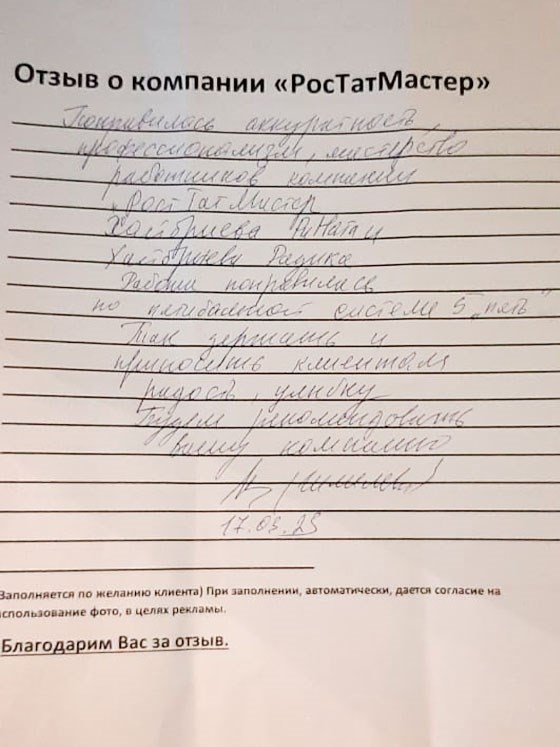 Отзыв о компании «РосТатМастер»
Понравилась аккуратность,
профессионализм, мастерство
работников компании
"РостТатМастер
Хайбриева Рината и
Хайбриева Радика
Работа понравилась
по пятибальной системе 5 „пять"
Так держать и
приносить клиентам
радость, улыбку
Будем рекомендовать
вашу компанию
17.03.23
Заполняется по желанию клиента) При заполнении, автоматически, дается согласие на
использование фото, в целях рекламы.
Благодарим Вас за отзыв.